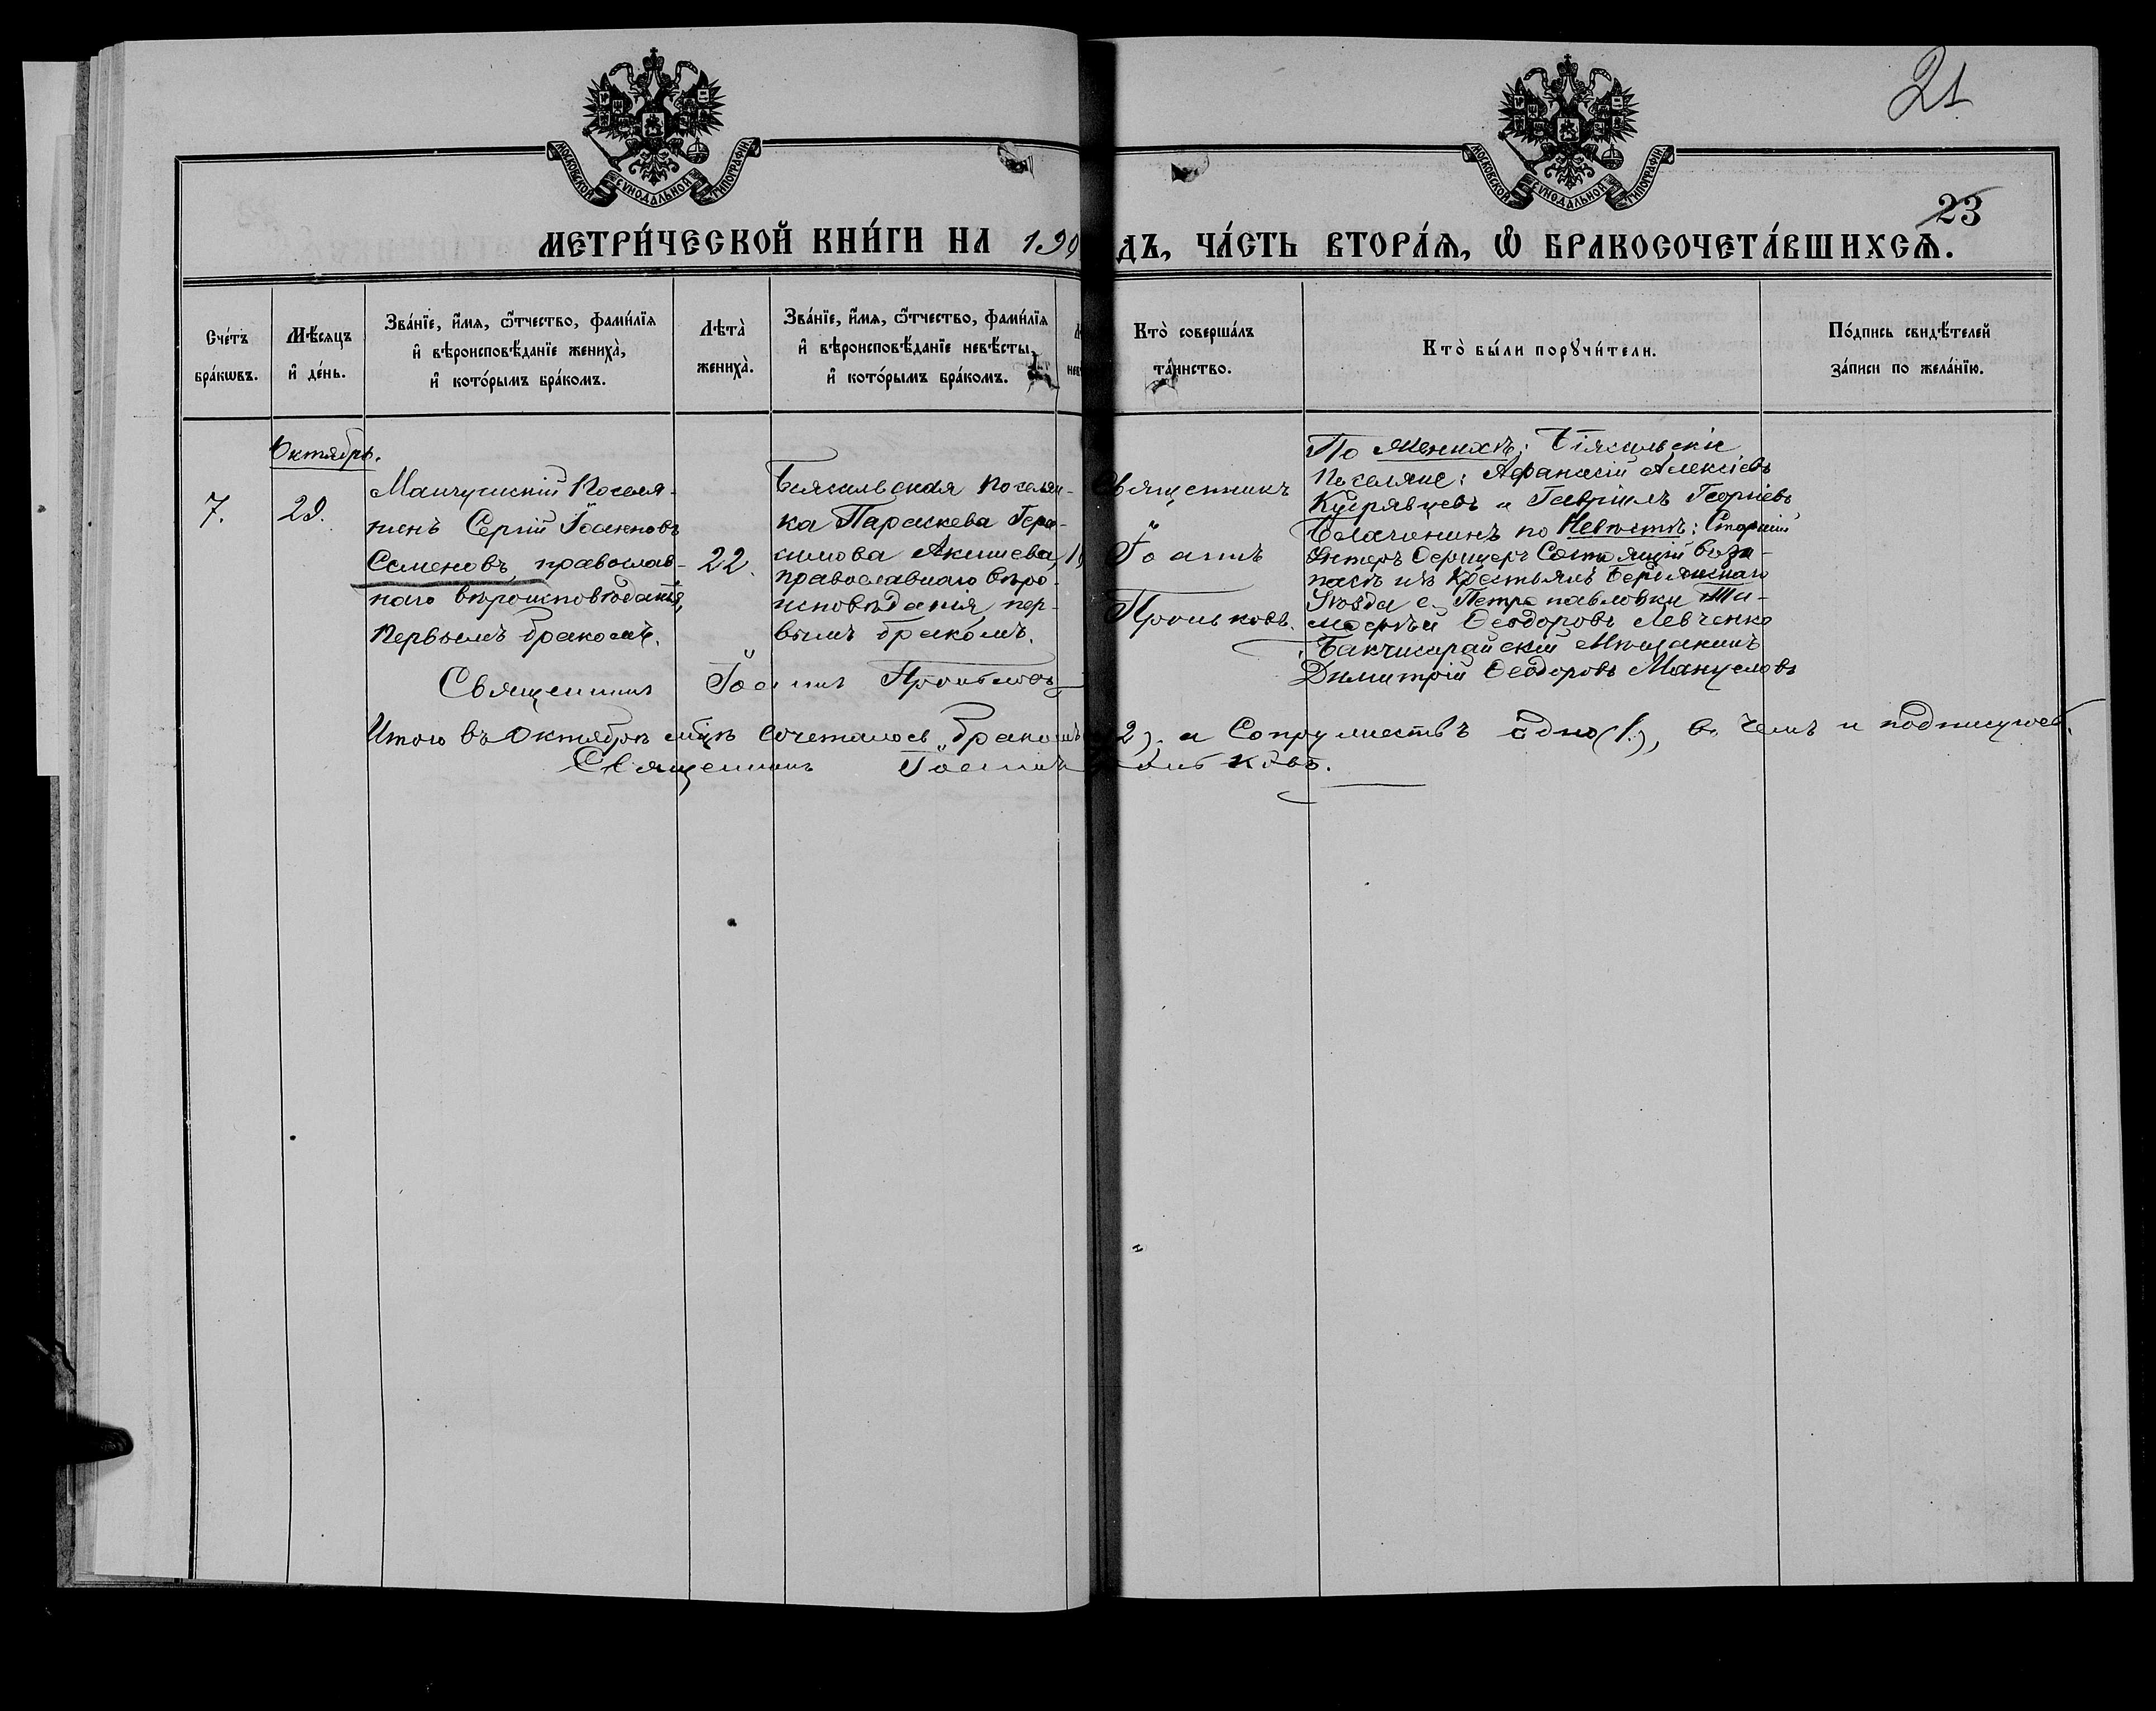 21
МОСКОВСКОЙ СѴНОДАЛЬНОЙ ТИПОГРАФІИ
МОСКОВСКОЙ СѴНОДАЛЬНОЙ ТИПОГРАФІИ
23
МЕТРИ́ЧЕСКОЙ КНИ́ГИ НА 190
ДЪ, ЧА́СТЬ ВТОРА́Ѧ, Ѿ БРАКОСОЧЕТА́ВШИХСѦ.
Сче́тъ
бра́кѡвъ.
Мѣ́сяцъ
и҆ де́нь.
Зва́нїе, и҆́мя, ѻ҆́тчество, фами́лїя
и҆ вѣроисповѣ́данїе жениха̀,
и҆ кото́рымъ бра́комъ.
Лѣта̀
жениха̀.
Зва́нїе, и҆́мя, ѻ҆́тчество, фами́лїя
и҆ вѣроисповѣ́данїе невѣ́сты,
и҆ кото́рымъ бра́комъ.
Кто̀ соверша́лъ
та́инство.
Кто̀ бы́ли порꙋчи́тели.
По́дпись свидѣ́телей
за́писи по жела́нїю.
Октябрь.
7.
29.
Мангушскій Поселя-
нинъ Сергій Іоанновъ
Семеновъ, православ-
наго вѣроисповѣданія,
Первымъ бракомъ.
22.
Біясальская Поселян-
ка Параскева Гера-
симова Акишева,
православнаго вѣро-
исповѣданія, пер-
вымъ бракомъ.
Священникъ
Іоаннъ
Проньковъ.
По Женихѣ: Біясальскіе
Поселяне: Афанасій Алексіевъ
Кудрявцевъ и Гавріилъ Георгіевъ
по Невѣстѣ: Старшій
Унтеръ Офицеръ Состоящій въ за-
пасѣ изъ Крестьянъ Бердянскаго
Уѣзда с. Петропавловки Ти-
моѳей Ѳеодоровъ Левченко
Бакчисарайскій Мѣщанинъ
Димитрій Ѳеодоровъ Мануиловъ
Священникъ Іоаннъ Проньковъ
Итого въ Октябрѣ мѣцѣ сочеталось бракомъ 2), а Супружествъ одно (1.), въ чемъ и подписуюсь.
Священникъ Іоаннъ ньковъ.